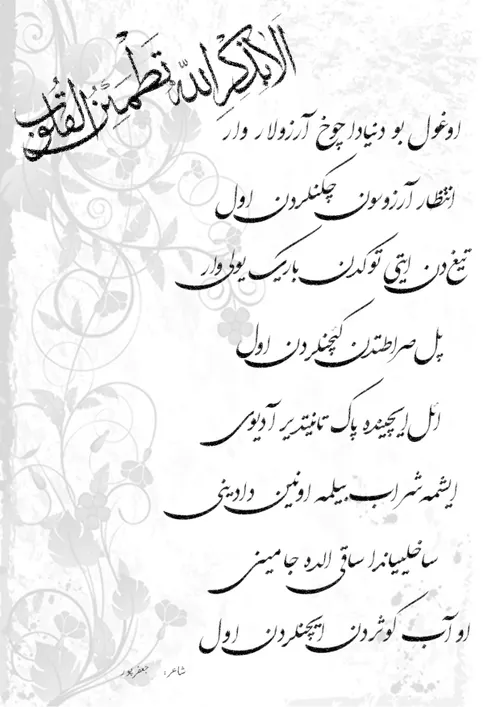 الا بذکر الله تطمئن القلوب
اوغول بو دنیادا چوخ آرزولار وار
انتظار آرزوسون چکنلردن اول
تیغ دن ایتی توکدن باریک یولی وار
پل صراطتدن کئچنلردن اول
ائل ایچینده پاک تانیتدیر آدیوی
ایشمه شراب بیلمه اونین دادینی
ساخلییاندا ساقی الده جامینی
او آب کوثردن ایچنلردن اول
شاعر: جعفرپور